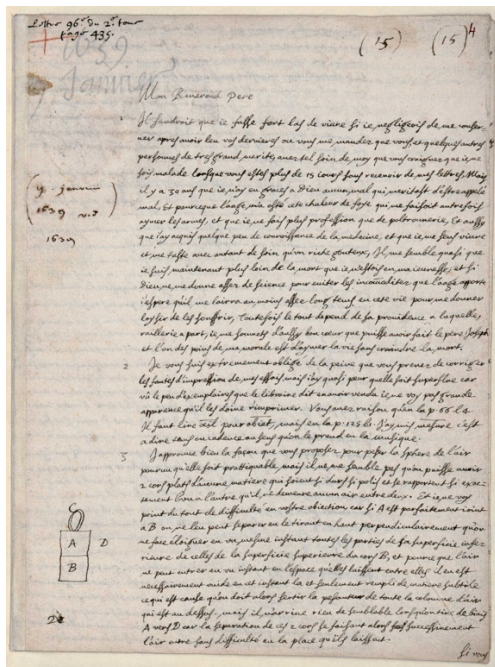 Lettre 96e. du 2e. tome
page 435.
(15) (15) 4
1639
Janvier
Mon Reverend Pere
Il faudroit que ie fusse fort las de vivre si ie negligeois de me conser-
ver apres avoir leu vos dernieres ou vous me mandez que vous et quelques autres
personnes de tres grand merite avez tel soin de moy que vous craignez que ie ne
sois malade lorsque vous estes plus de 15 iours sans recevoir de mes lettres. Mais
il y a 30 ans que ie n'ay eu graces a Dieu aucun mal qui meritast d'estre appelé
mal. Et pourceque l'aage m'a osté cete chaleur de foye qui me faisoit autrefois
aymer les armes, et que ie ne fais plus profession que de poltronnerie, Et aussy
que i'ay acquis quelque peu de connoissance de la medecine, et que ie me sens vivre
et me taste avec autant de soin qu'un riche gouteux, Il me semble quasi que
ie suis maintenant plus loin de la mort que ie n'estois en ma ieunesse, et si
Dieu ne me donne assez de science pour eviter les incommoditez que l'aage apporte
i'espere qu'il me lairra au moins assez long tems en cete vie pour me donner
loysir de les souffrir, Toutefois le tout depend de sa providence a laquelle,
raillerie a part, ie me soumets d'aussy bon cœur que puisse avoir fait le pere Joseph
et l'un des poins de ma morale est d'aymer la vie sans craindre la mort.
(9. janvier
1639
1639
2 Je vous suis extremement obligé de la peine que vous prenez de corriger
les fautes d'impression de mes essais mais i'ay quasi peur quelle soit superflue car
vû le peu d'exemplaires que le libraire dit en avoir vendu ie ne voy pas grande
apparence qu'il les doive rimprimer. Vous avez raison qu'en la p. 66 l. 4
Il faut lire œil pour obiet, mais en la p. 125 l. 1 J'ay mis mesure c'est
a dire sous ou cadence au sens qu'on le prend en la musique.
3 J'approuve bien la façon que vous proposez pour peser la sphere de l'air
pourvû qu'elle soit pratiquable, mais il ne me semble pas qu'on puisse avoir
2 cors plats d'aucune matiere qui soient si durs si polis et se rapportent si exac-
tement l'un a l'autre qu'il ne demeure aucun air entre deux. Et ie ne voy
point du tout de difficulté en vostre obiection car si A est parfaitement ioint
a B on ne les peut separer en le tirant en haut perpendiculairement qu'on
ne face eslever en un mesme instant toutes les parties de sa superficie infe-
rieure de celles de la superficie superieure du cors B, et pource que l'air
ne peut entrer en un instant en l'espace qu'elles laissent entre elles il en est
necessairement vuide en cet instant la et seulement rempli de matiere subtile
ce qui est cause qu'on doit alors sentir la pesanteur de toute la colomne d'air
qui est au dessus, mais il n'arrive rien de semblable lorsqu'on tire de biais
A vers D car la separation de ces 2 cors se faisant alors successivement
l'air entre sans difficulté en la place qu'ils laissent.
A D
B
Si vous